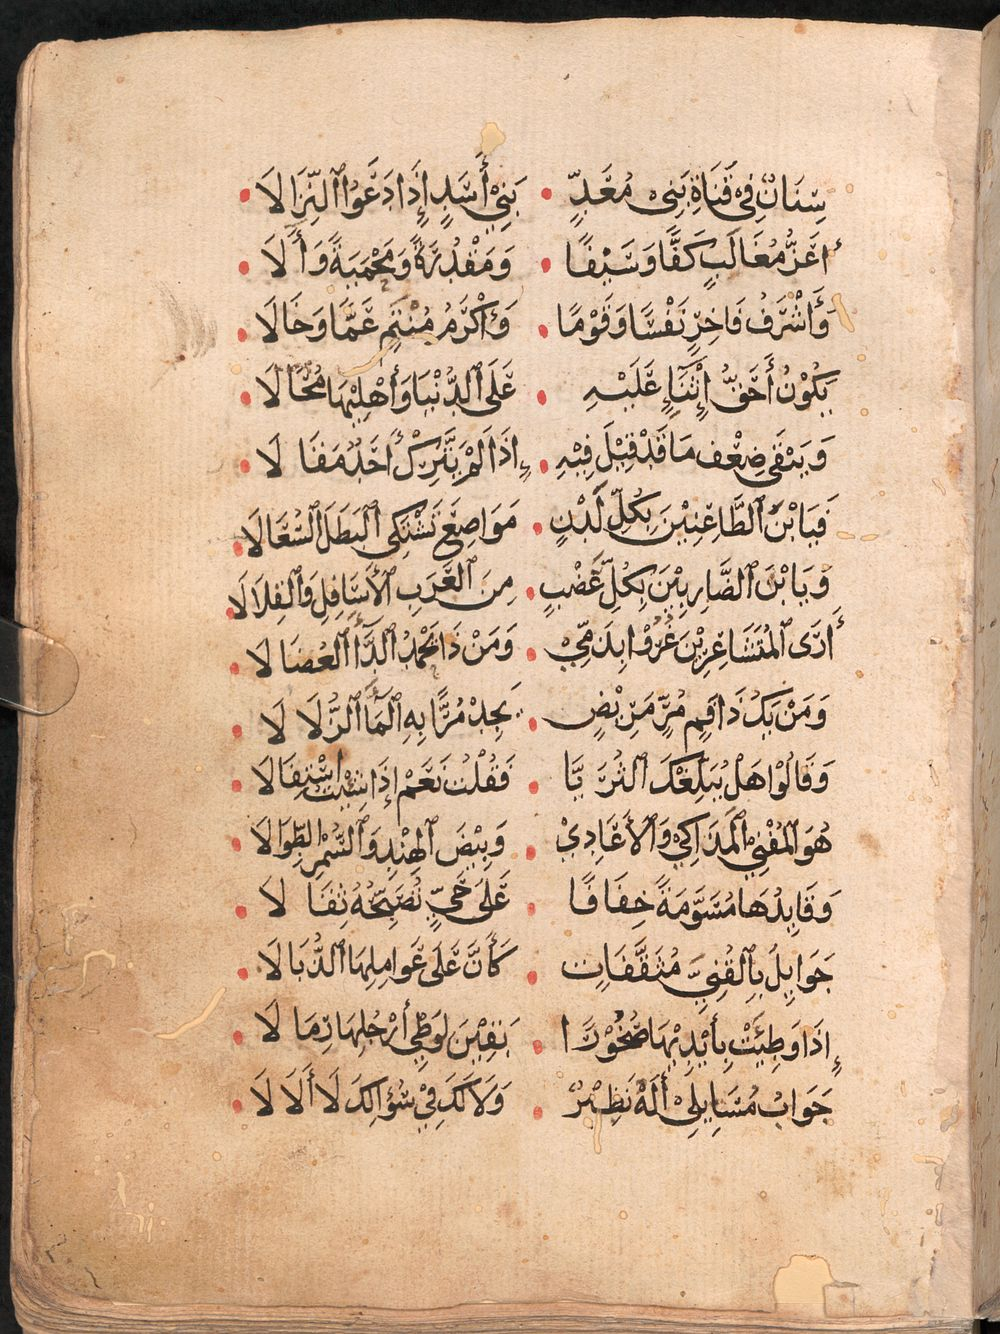 سِنَانٌ فِي قَنَاةِ بَنِي مُعَدٍّ • بَنِي أَسَدٍ إِذَا دَعَوُا النِّزَالَا
أَعَزُّ مُغَالِبٍ كَفًّا وَسَيْفًا • وَمَقْدُرَةً وَمَحْمِيَةً وَآلَا
وَأَشْرَفُ فَاخِرٍ نَفْسًا وَقَوْمًا • وَأَكْرَمُ مُنْتَمٍ عَمًّا وَخَالَا
يَكُونُ أَحَقُّ إِثْنَاءٍ عَلَيْهِ • عَلَى الدُّنْيَا وَأَهْلِيهَا مُحَالَا
وَيَبْقَى ضِعْفُ مَا قَدْ قِيلَ فِيهِ • إِذَا لَمْ يَتَّرِكْ أَحَدٌ مَقَالَا
فَيَا ابْنَ الطَّاعِنِينَ بِكُلِّ لَدْنٍ • مَوَاضِعَ تَشْتَكِي الْبَطَلَ السُّعَالَا
وَيَا ابْنَ الضَّارِبِينَ بِكُلِّ عَضْبٍ • مِنَ الْعَرَبِ الْأَسَافِلِ وَالْقِلَالَا
أَرَى الْمُتَشَاعِرِينَ غَرُوا بِذَمِّي • وَمَنْ ذَا يَحْمَدُ الدَّاءَ الْعُضَالَا
وَمَنْ يَكُ ذَا فَمٍ مُرٍّ مَرِيضٍ • يَجِدْ مُرًّا بِهِ الْمَاءَ الزُّلَالَا
وَقَالُوا هَلْ يُبَلِّغُكَ الثُّرَيَّا • فَقُلْتُ نَعَمْ إِذَا شِئْتُ اسْتِفَالَا
هُوَ الْمُفْنِي الْمَذَاكِي وَالْأَعَادِيْ • وَبِيضَ الْهِنْدِ وَالسُّمْرَ الطِّوَالَا
وَقَايِدُهَا مُسَوَّمَةً خِفَافًا • عَلَى حَيٍّ تُصَبِّحُهُ ثِقَالَا
جَوَايِلَ بِالْقُنِيِّ مُثَقَّفَاتٍ • كَأَنَّ عَلَى عَوَامِلِهَا الذُّبَالَا
إِذَا وَطِئَتْ بِأَيْدِيهَا صُخُورًا • بَقِينَ لِوَطْيِ أَرْجُلِهَا رِمَالَا
جَوَابُ مُسَايِلِي أَلَهُ نَظِيرٌ • وَلَا لَكَ فِي سُؤَالِكَ لَا أَلَا لَا